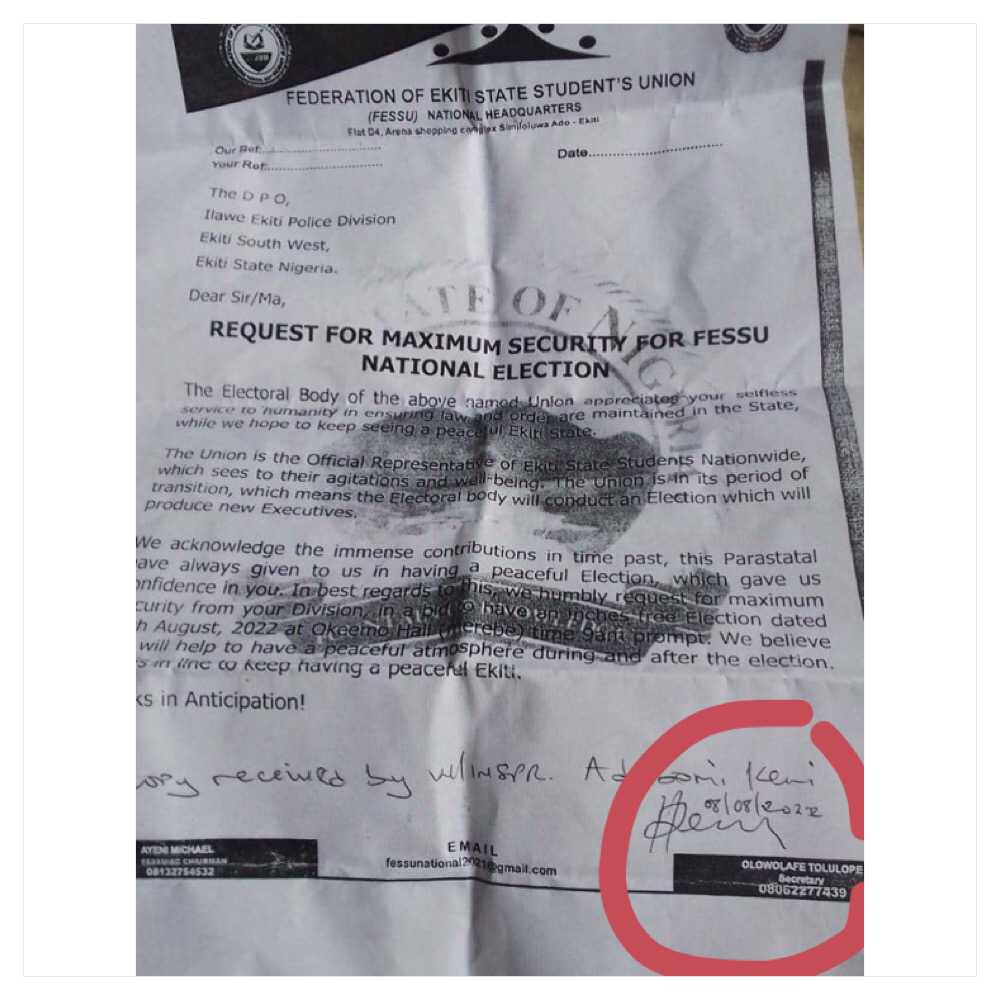 FEDERATION OF EKITI STATE STUDENT'S UNION
(FESSU) NATIONAL HEADQUARTERS
Flat D4, Arena shopping complex Similoluwa Ado - Ekiti
Our Ref:
Your Ref:
Date
The D P O,
Ilawe Ekiti Police Division
Ekiti South West,
Ekiti State Nigeria.
Dear Sir/Ma,
REQUEST FOR MAXIMUM SECURITY FOR FESSU
NATIONAL ELECTION
The Electoral Body of the above named Union appreciates your selfless
service to humanity in ensuring law and order are maintained in the State,
while we hope to keep seeing a peaceful Ekiti State.
The Union is the Official Representative of Ekiti State Students Nationwide,
which sees to their agitations and well-being. The Union is in its period of
transition, which means the Electoral body will conduct an Election which will
produce new Executives.
We acknowledge the immense contributions in time past, this Parastatal
ave always given to us in having a peaceful Election, which gave us
onfidence in you. In best regards to this, we humbly request for maximum
curity from your Division, in a bid to have an inches free Election dated
h August, 2022 at Okeemo Hall (Merebe) time 9am prompt. We believe
will help to have a peaceful atmosphere during and after the election.
s in line to keep having a peaceful Ekiti.
ks in Anticipation!
opy received by W/INSPR. Keni
08/08/2022
AYENI MICHAEL
CHAIRMAN
08132754532
EMAIL
fessunational2021@gmail.com
OLOWOLAFE TOLULOPE
Secretary
08062277439
STATE OF NIGERIA